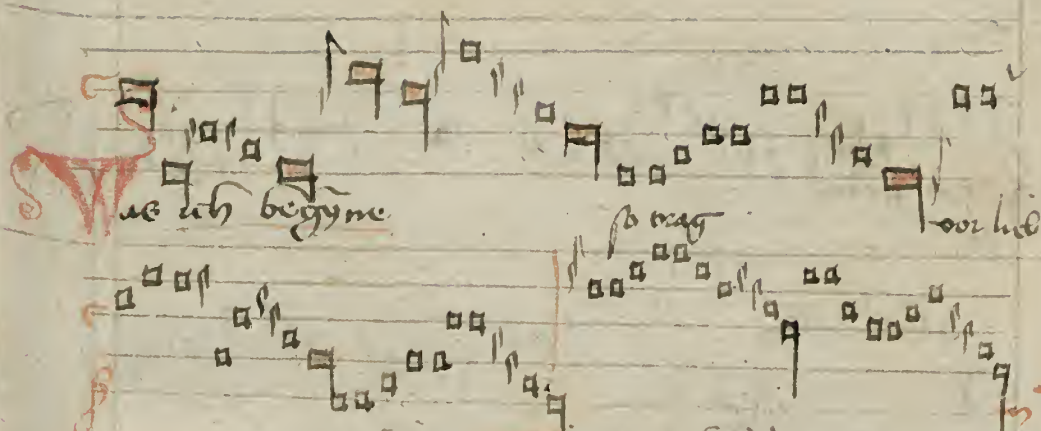 Was ich begyñe so trag vor lieb